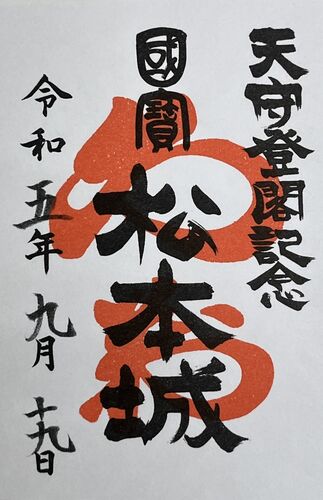 天守登閣記念
國寶
松本城
令和五年九月十九日